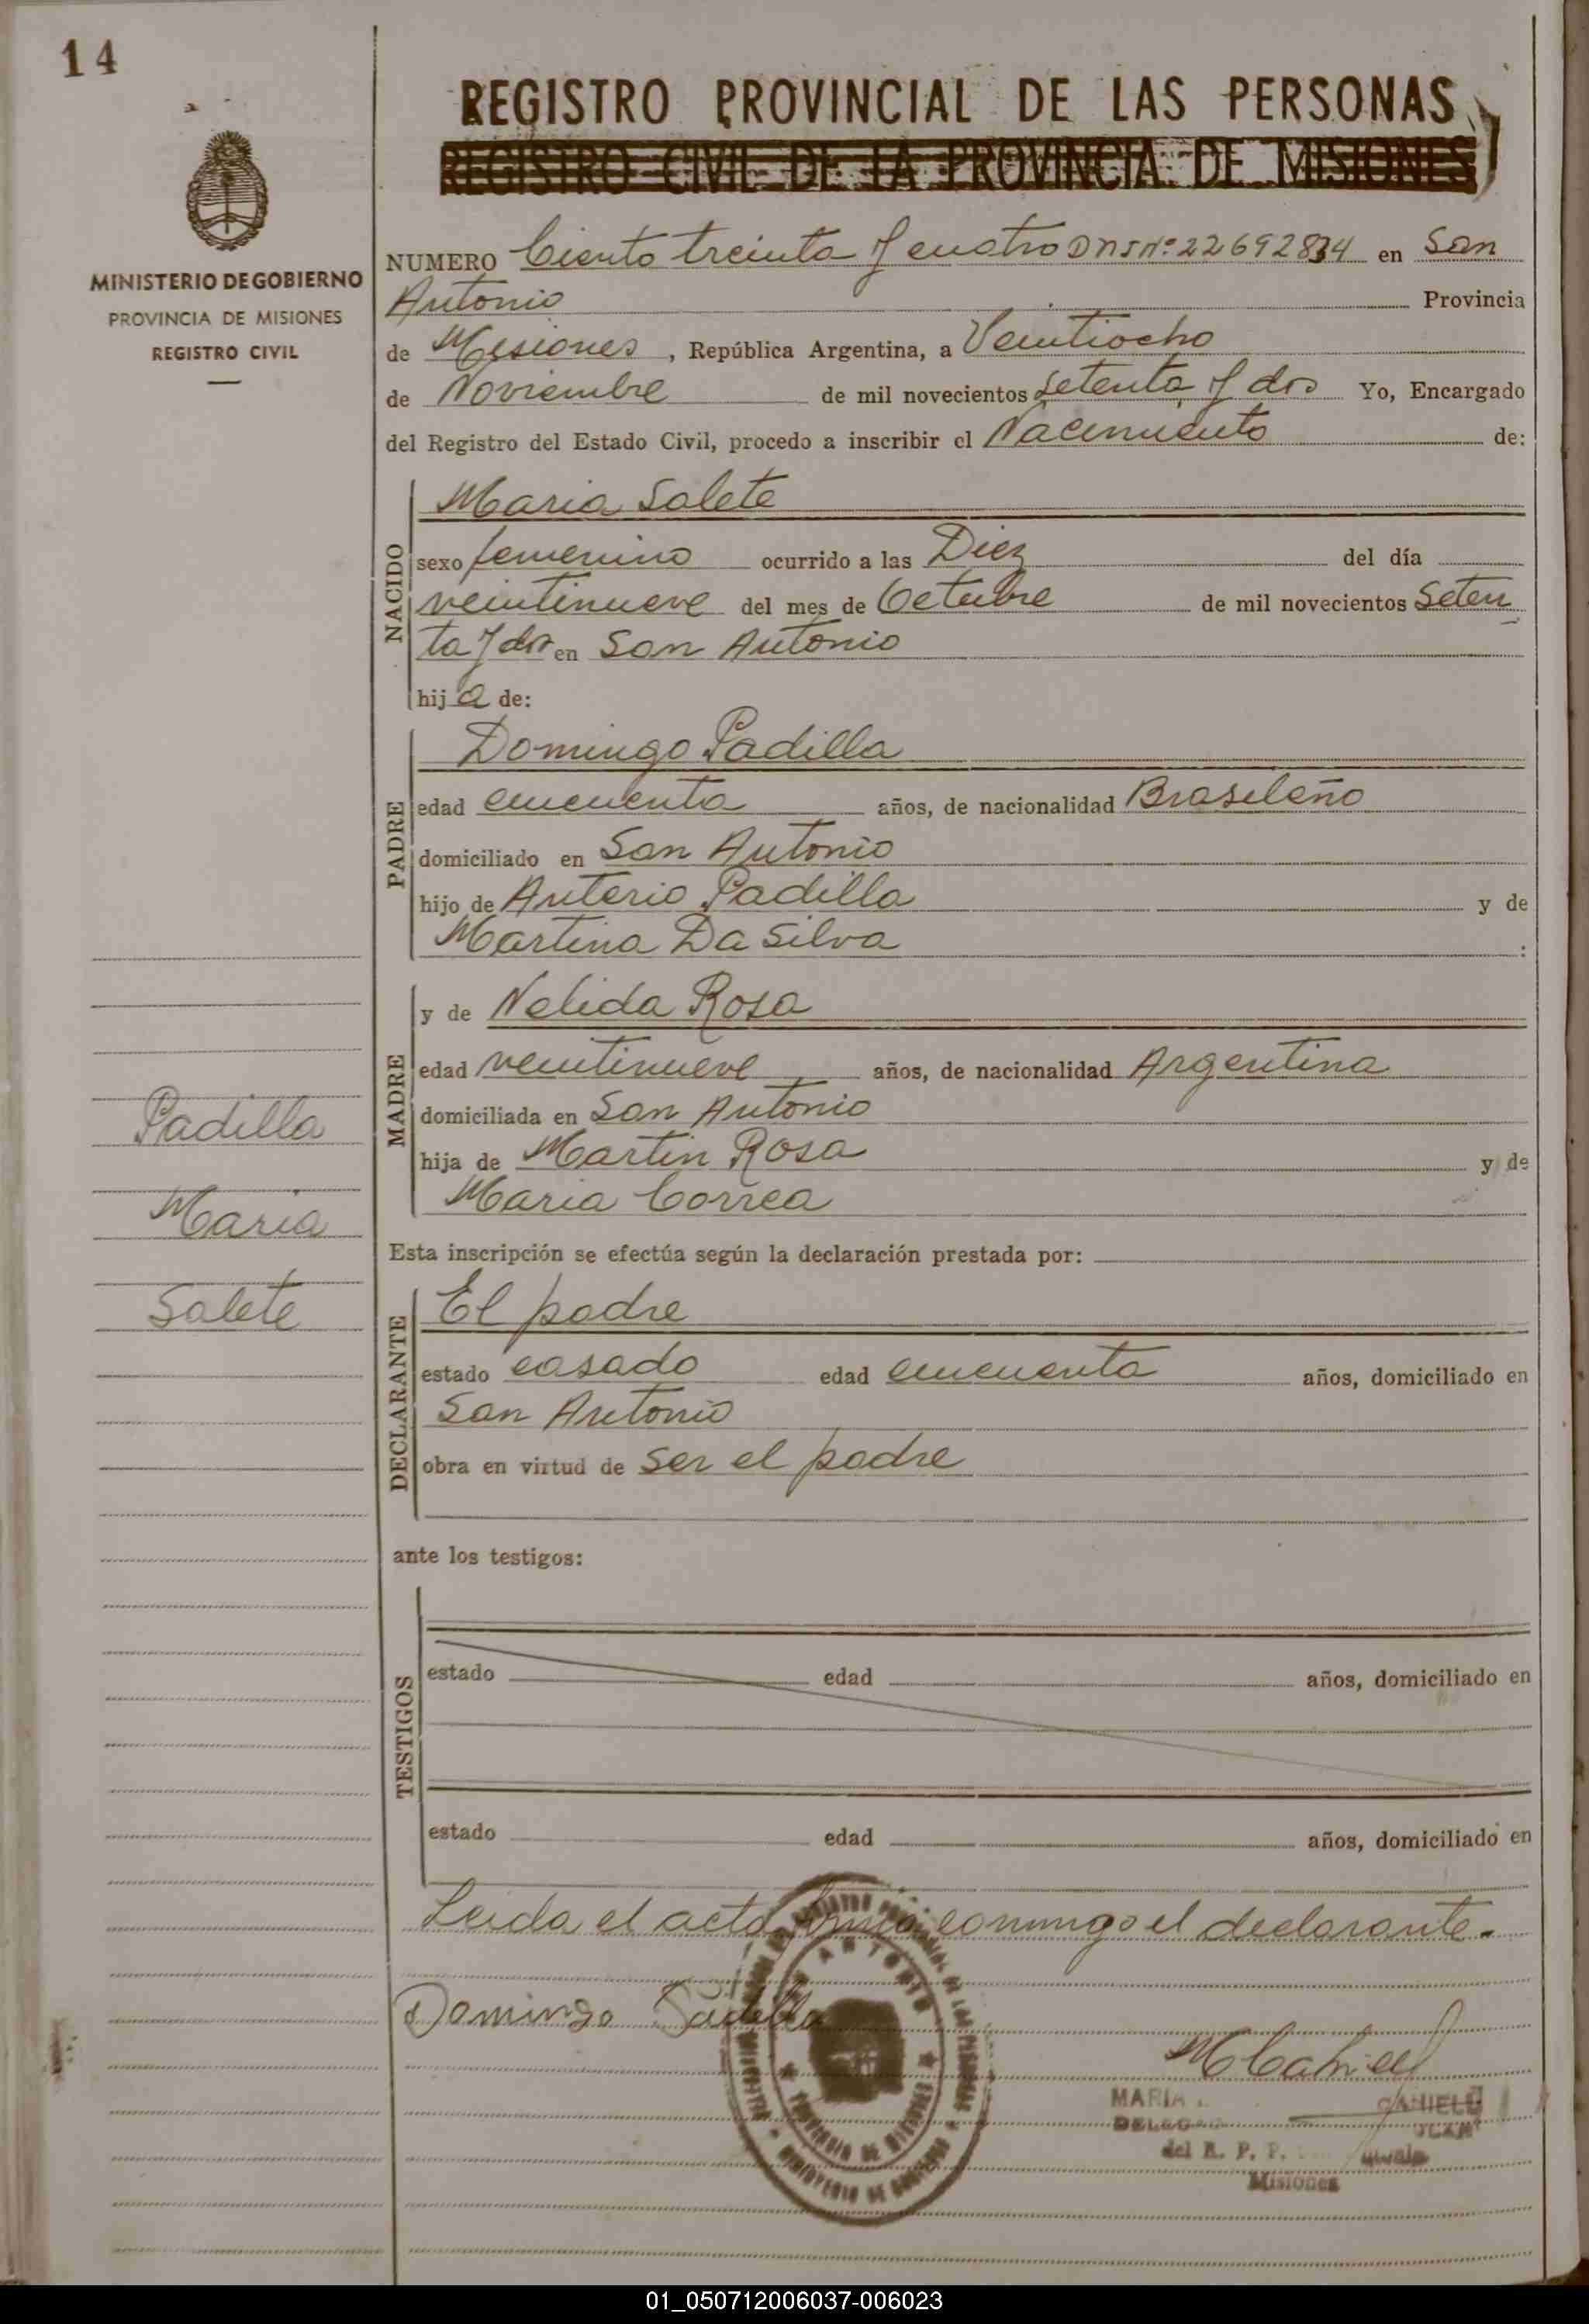 14
REGISTRO PROVINCIAL DE LAS PERSONAS
REGISTRO CIVIL DE LA PROVINCIA DE MISIONES
MINISTERIO DE GOBIERNO
PROVINCIA DE MISIONES
REGISTRO CIVIL
NUMERO Ciento treinta y cuatro DNI Nº 22692834 en San
Antonio Provincia
de Misiones, República Argentina, a Veintiocho
de Noviembre de mil novecientos Setenta y dos Yo, Encargado
del Registro del Estado Civil, procedo a inscribir el Nacimiento de:
NACIDO
Maria Salete
sexo femenino ocurrido a las Diez del día
veintinueve del mes de Octubre de mil novecientos Seten
ta y dos en San Antonio
hija de:
PADRE
Domingo Padilla
edad cincuenta años, de nacionalidad Brasileño
domiciliado en San Antonio
hijo de Anterio Padilla y de
Martina Da Silva
MADRE
y de Nelida Rosa
edad veintinueve años, de nacionalidad Argentina
domiciliada en San Antonio
hija de Martin Rosa y de
Maria Correa
Padilla
Maria
Salete
Esta inscripción se efectúa según la declaración prestada por:
DECLARANTE
El padre
estado casado edad cincuenta años, domiciliado en
San Antonio
obra en virtud de ser el padre
ante los testigos:
TESTIGOS
estado edad años, domiciliado en
estado edad años, domiciliado en
Leida el acta firma conmigo el declarante.
Domingo Padilla
MARIA
del R. P. P.
Misiones
PROVINCIA DE MISIONES
MINISTERIO DE GOBIERNO
01_050712006037-006023